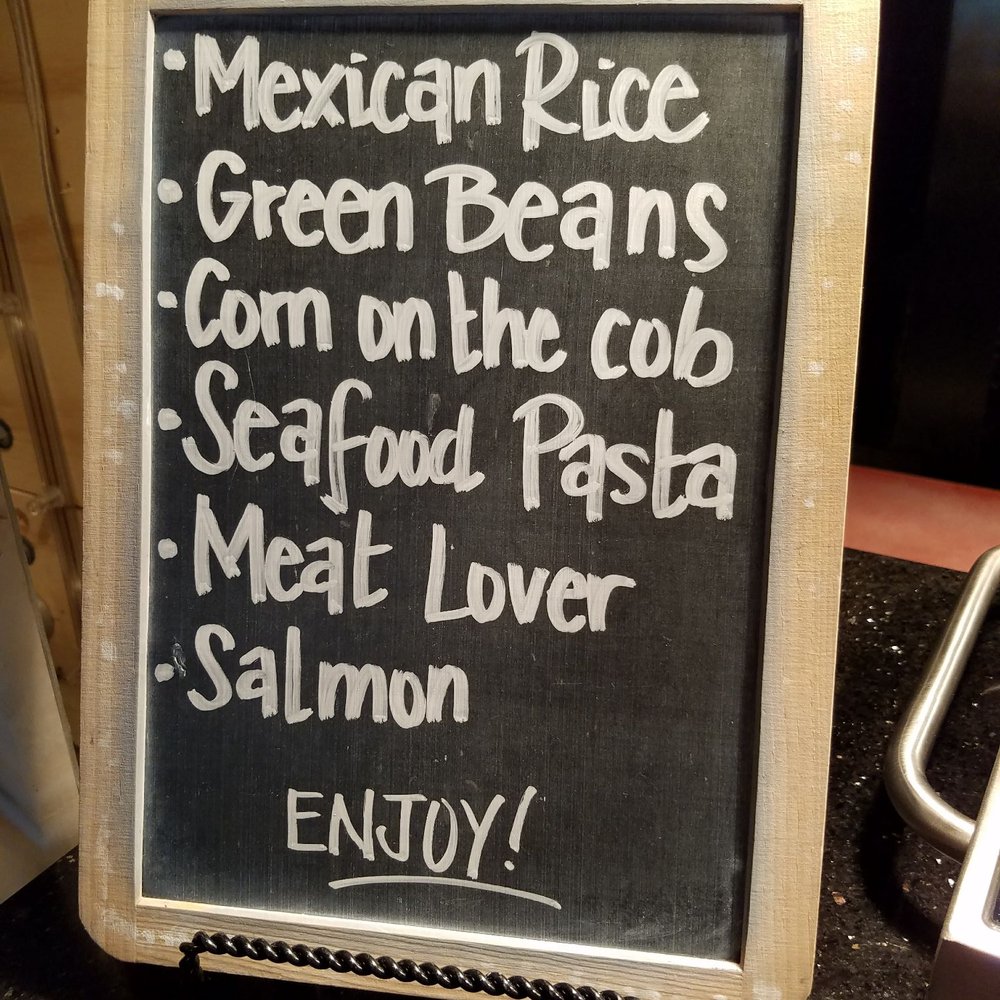 • Mexican Rice
• Green Beans
• Corn on the cob
• Seafood Pasta
• Meat Lover
• Salmon
ENJOY!